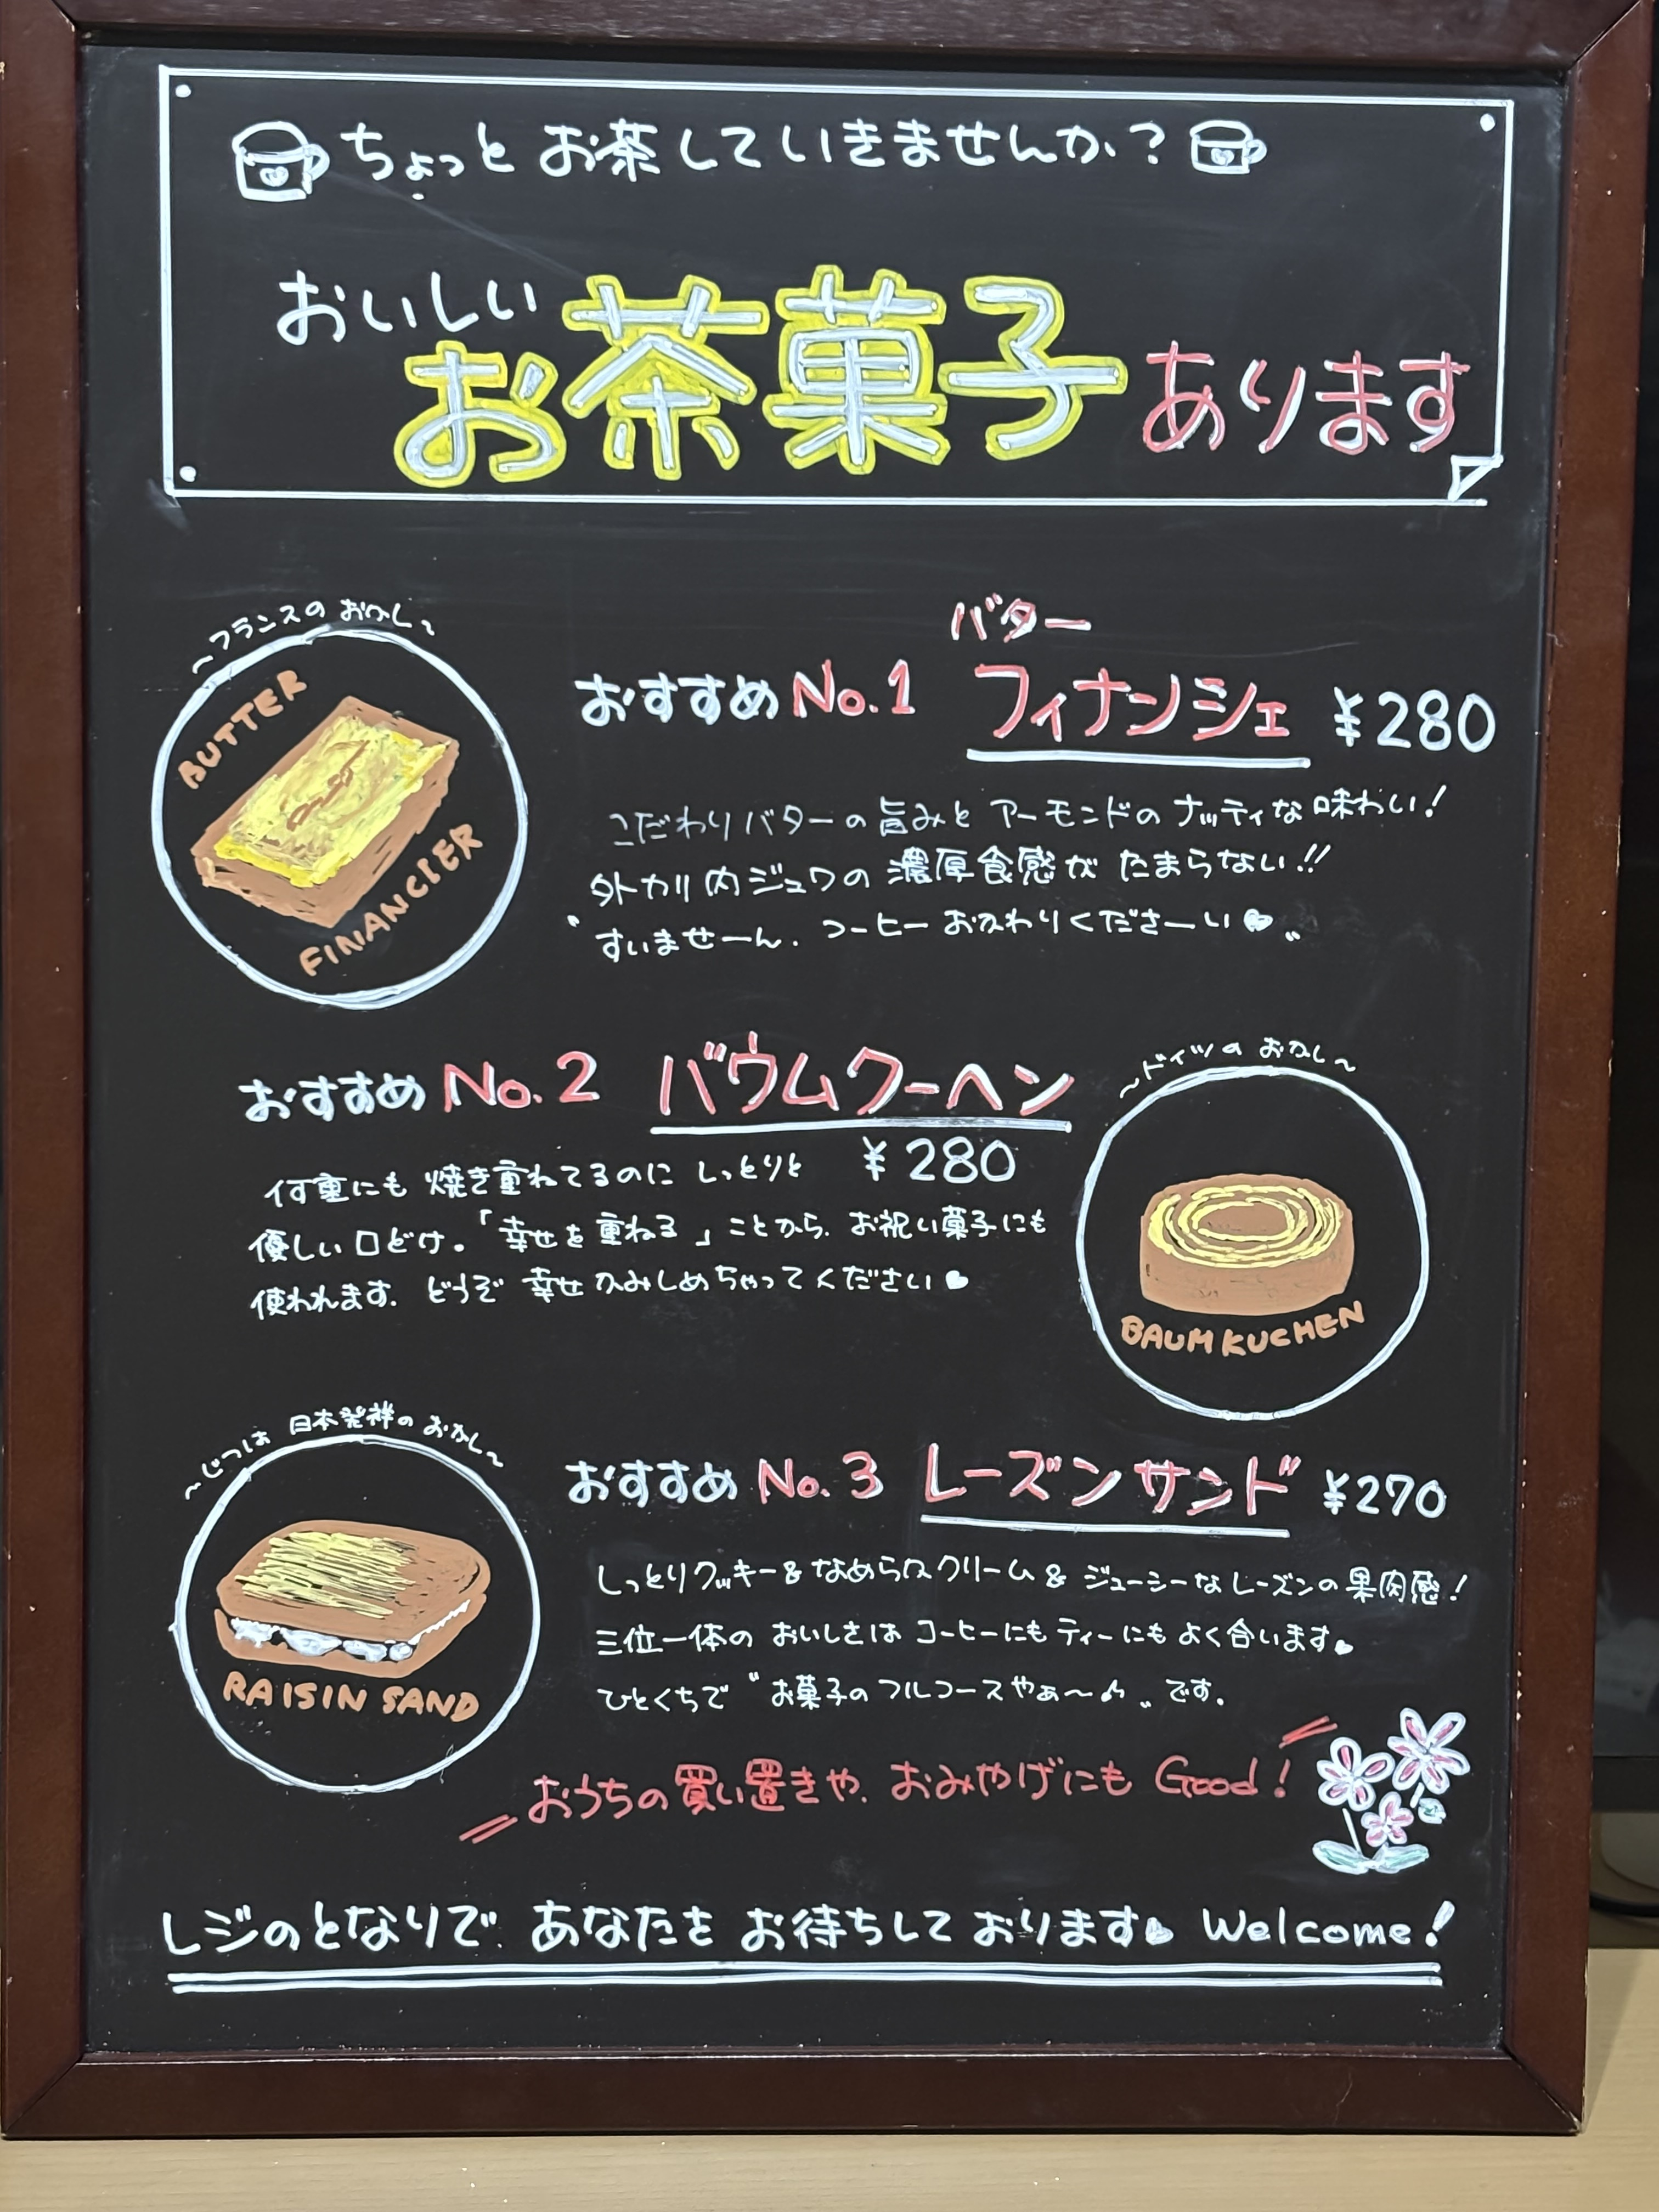 ちょっと お茶 していきませんか?
おいしい
お茶菓子 あります
〜フランスの おかし〜
BUTTER
FINANCIER
バター
おすすめ No.1 フィナンシェ ¥280
こだわりバターの旨みと アーモンドの ナッティな 味わい!
外カリ 内ジュワの 濃厚食感が たまらない!!
“すいませーん. コーヒー おかわりくださーい♥„
おすすめ No.2 バウムクーヘン
¥280
何重にも 焼き重ねてるのに しっとりと
優しい 口どけ。「幸せを 重ねる」ことから. お祝い菓子にも
使われます. どうぞ 幸せ かみしめちゃってください♥
〜ドイツの おかし〜
BAUMKUCHEN
〜じつは 日本発祥の おかし〜
RAISIN SAND
おすすめ No.3 レーズンサンド ¥270
しっとりクッキー&なめらかクリーム& ジューシーなレーズンの 果肉感!
三位一体の おいしさは コーヒーにも ティーにも よく合います♥
ひとくちで “お菓子の フルコースやぁ〜♪„ です.
おうちの 買い置きや. おみやげにも Good!
レジのとなりで. あなたを お待ちして おります♥ Welcome!